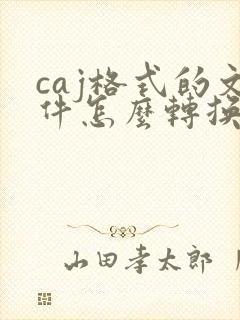 caj格式的文
件怎麼轉換
山田孝太郎